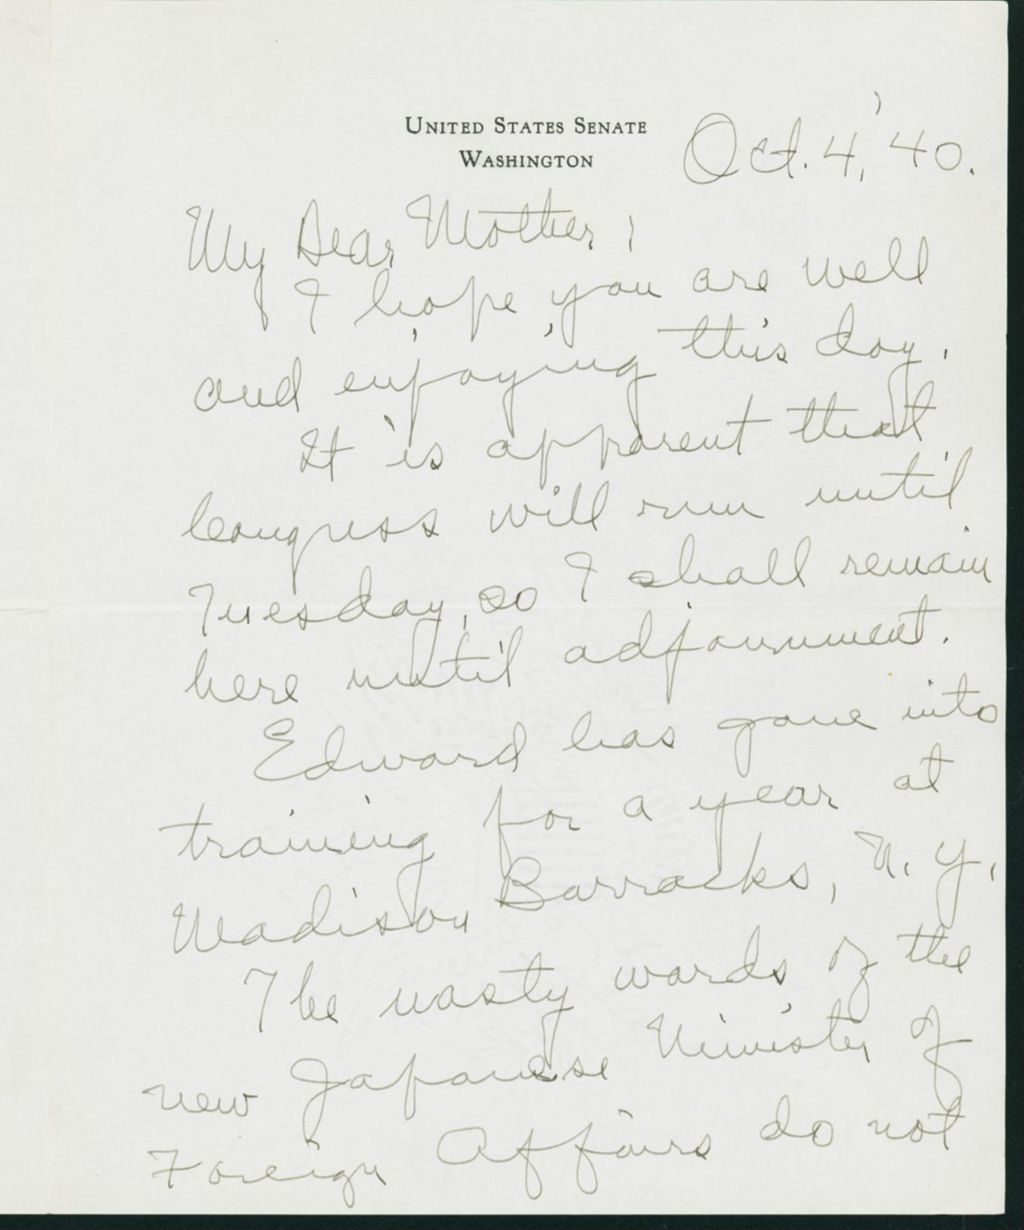 UNITED STATES SENATE
WASHINGTON
Oct. 4, '40.
My Dear Mother:
I hope you are well
and enjoying this day.
It is apparent that
Congress will run until
Tuesday, so I shall remain
here until adjournment.
Edward has gone into
training for a year at
Madison Barracks, N. Y.
The nasty words of the
new Japanese Minister of
Foreign Affairs do not